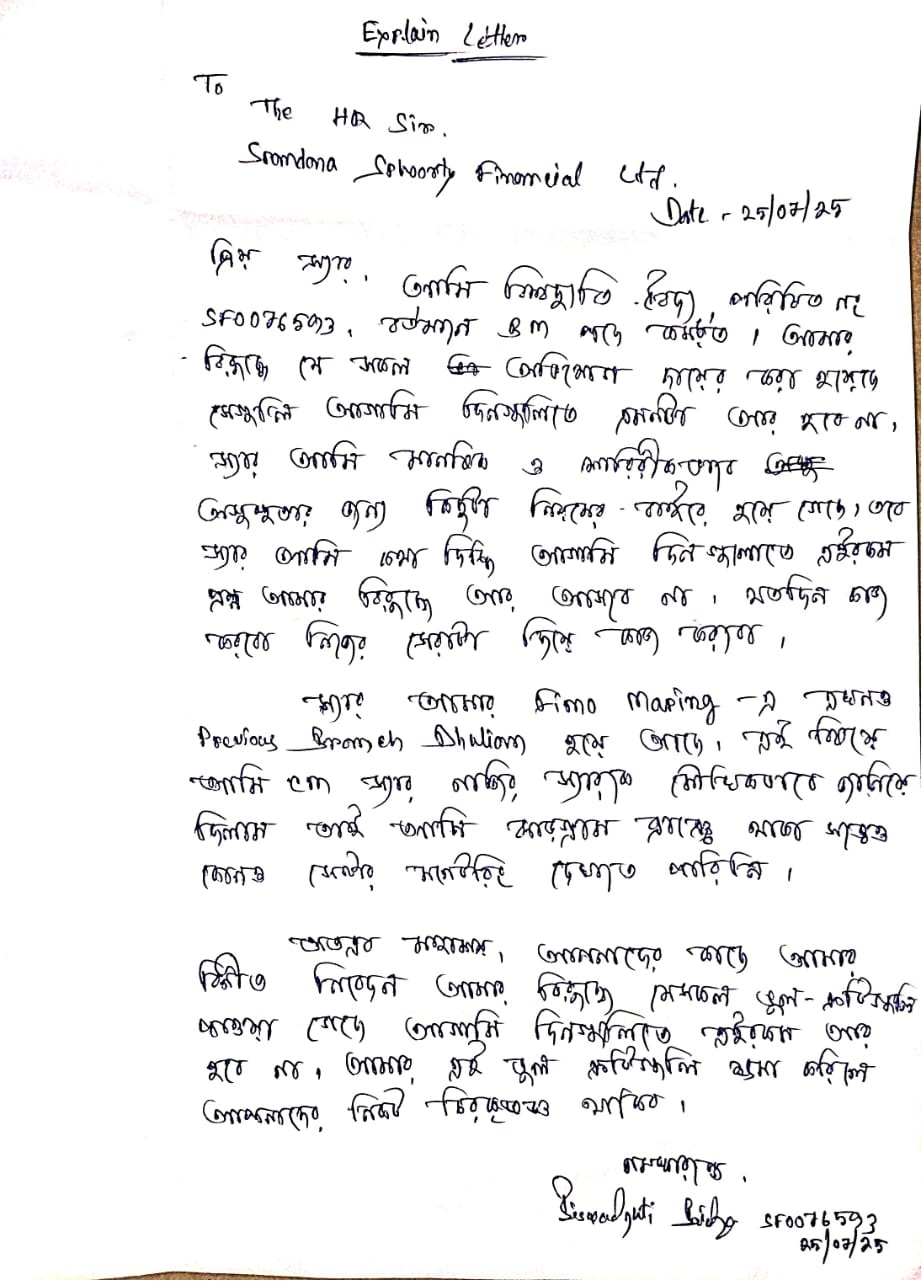 Explain Letter
To
The HR Sir.
Spandana Sphoorty Financial Ltd.
Date - 25/07/25
প্রিয় স্যার,
আমি বিশ্বদ্যুতি বৈদ্য, পরিচিত নং
SF0076593, বর্তমানে BM পদে কর্মরত। আমার
বিরুদ্ধে যে সকল অভিযোগ দায়ের করা হয়েছে
সেগুলি আগামি দিনগুলিতে এমনটা আর হবে না,
স্যার আমি মানসিক ও শারিরীকভাবে
অসুস্থতার জন্য কিছুটা নিয়মের বাইরে হয়ে গেছে, তবে
স্যার আমি কথা দিচ্ছি আগামি দিনগুলোতে এইরকম
প্রশ্ন আমার বিরুদ্ধে আর আসবে না। যতদিন কাজ
করবো নিজের সেরাটা দিয়ে কাজ করবো।
স্যার আমার Fimo Maping-এ এখনও
Previous Branch Dhulian হয়ে আছে, এই বিষয়ে
আমি CM স্যার নাজির স্যারকে মৌখিকভাবে জানিয়ে
ছিলাম তাই আমি সাড়গ্রাম ব্রাঞ্চে থাকা সত্ত্বেও
কোনও সেন্টার মনিটরিং দেখাতে পারিনি।
অতএব মহাশয়, আপনাদের কাছে আমার
বিনীত নিবেদন আমার বিরুদ্ধে যেসকল ভুল-ত্রুটিগুলি
পাওয়া গেছে আগামি দিনগুলিতে এইরকম আর
হবে না। আমার এই ভুল ত্রুটিগুলি ক্ষমা করিলে
আপনাদের নিকট চিরকৃতজ্ঞ থাকিব।
নমস্কারান্তে,
Biswadyuti Baidya SF0076593
25/07/25